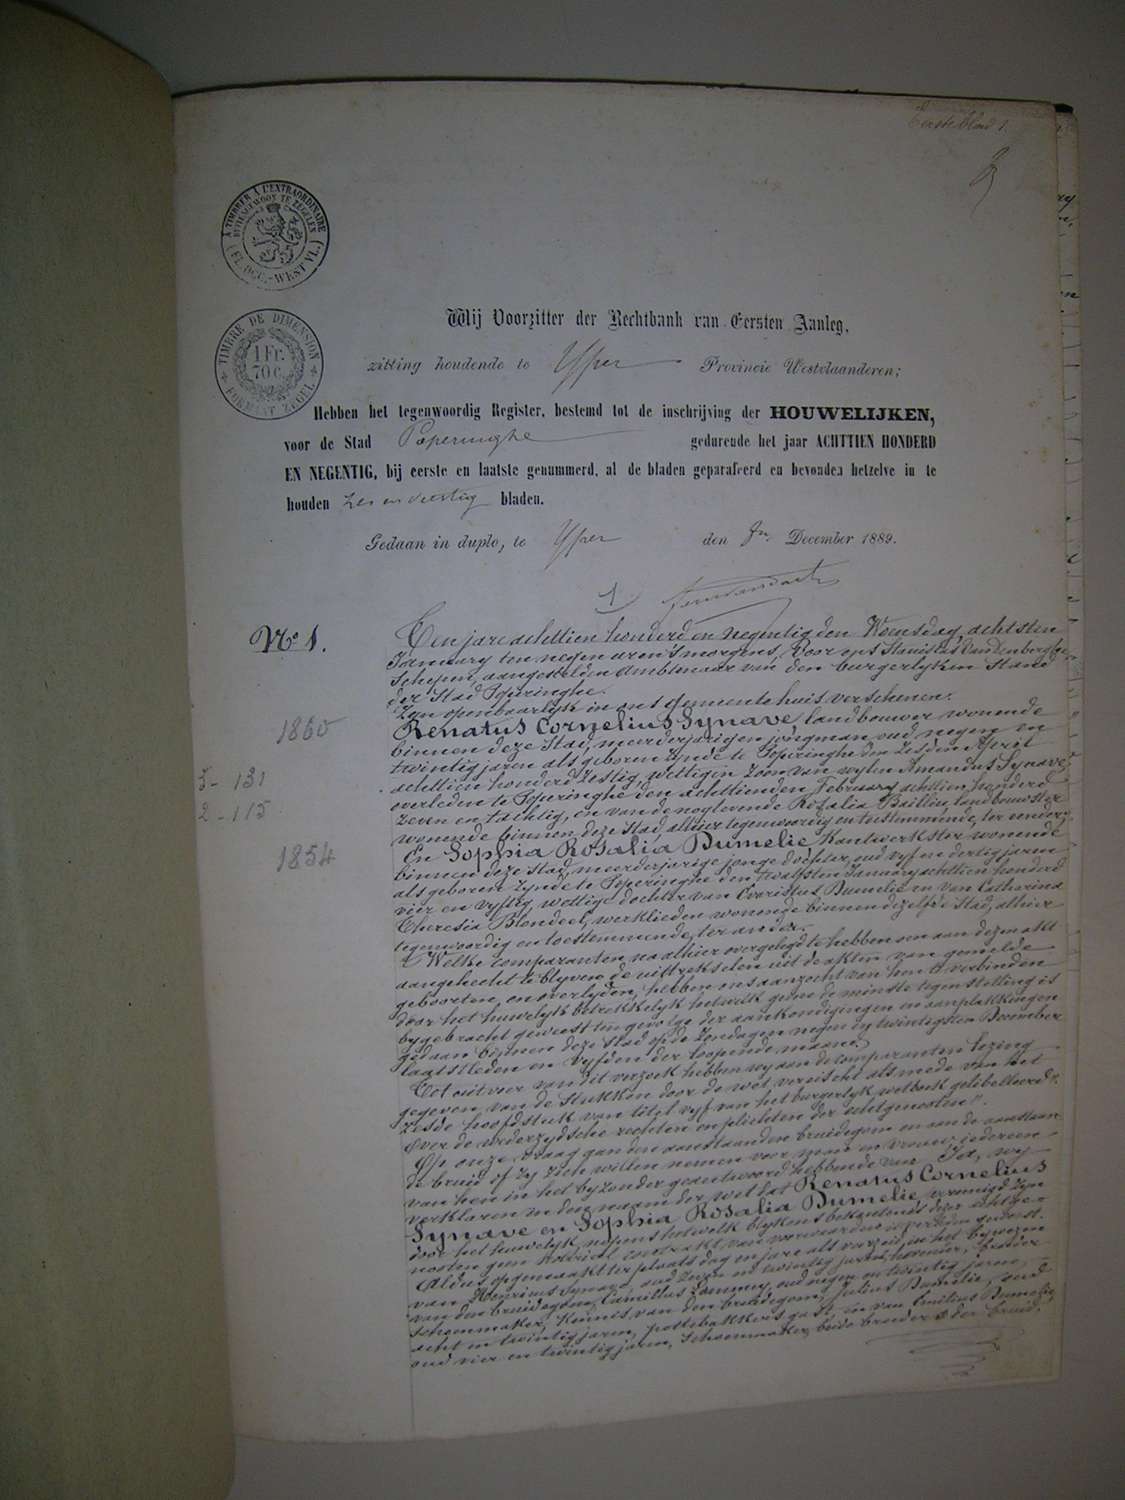 Eerste blad 1
À TIMBRER À L'EXTRAORDINAIRE
BUITENGEWOON TE ZEGELEN
(FL. OCC.-WEST VL.)
TIMBRE DE DIMENSION
1 Fr. 70 c.
FORMAAT ZEGEL
Wij Voorzitter der Rechtbank van Eersten Aanleg,
zitting houdende te Yper Provincie Westvlaanderen;
Hebben het tegenwoordig Register, bestemd tot de inschrijving der HOUWELIJKEN,
voor de Stad Poperinghe gedurende het jaar ACHTTIEN HONDERD
EN NEGENTIG, bij eerste en laatste genummerd, al de bladen geparafeerd en bevonden hetzelve in te
houden zes en veertig bladen.
Gedaan in duplo, te Yper den December 1889.
No 1.
Ten jare achttien honderd en negentig den Woensdag, achtsten
January ten negen uren 's morgens, Voor ons Stanislas Vandenberghe
Schepen, aangestelden Ambtenaar van den burgerlyken Stand
der Stad Poperinghe.
Zyn openbaarlyk in ons Gemeentehuis verschenen:
1860
Renatus Cornelius Synave, landbouwer wonende
binnen deze Stad, meerderjarigen jongman oud negen en
twintig jaren als geboren zynde te Poperinghe den zesden April
achttien honderd zestig, wettigen Zoon van wylen Amandus Synave,
5 - 131
overleden te Poperinghe, den achttienden February achttien honderd
2 - 115
zeven en tachtig, en van de nog levende Rosalia Baillieu, landbouwster
wonende binnen deze Stad, alhier tegenwoordig en toestemmende, ter eender,
1854
En Sophia Rosalia Dumelie, Kantwerkster wonende
binnen deze Stad, meerderjarige jonge dochter, oud vyf en dertig jaren
als geboren zynde te Poperinghe den twalfsten January achttien honderd
vier en vyftig, wettige dochter van Evaristus Dumelie en van Catharina
Theresia Blondeel, werklieden wonende binnen dezelfde Stad, alhier
tegenwoordig en toestemmende, ter ander.
Welke comparanten na alhier overgelegd te hebben om aan deze makt
aangehecht te blyven de uittreksels uit de akten van gemelde
geboorten, en overlyden, hebben ons aanzocht van hen te verbinden
door het huwelyk betrekkelyk hetwelk geene de minste tegenstelling is
bygebracht geweest ten gevolge der aankondigingen en aanplakkingen
gedaan binnen deze Stad op de Zondagen negen en twintigsten December
laatstleden en vyfden der loopende maand.
Tot uitvoer van dit verzoek hebben wy aan de comparanten lezing
gegeven, van de stukken door de wet vereischt als mede van het
zesde hoofdstuk van titel vyf van het burgerlyk wetboek gelibelleerd:
Over de wederzydsche rechten en plichten der echtgenooten".
Op onze vraag aan den aanstaanden bruidegom en aan de aanstaan
de bruid of zy zich willen nemen voor man en vrouw; iedereen
van hen in het byzonder geantwoord hebbende van Ja, wy
verklaren in den naam der wet dat Renatus Cornelius
Synave en Sophia Rosalia Dumelie, vereenigd zyn
door het huwelyk, nopens hetwelk blykens bekentenis dezer echtge-
nooten geen Notariael contrakt van voorwaarden is verleden geweest.
Aldus opgemaakt ter plaats dag en jare als verzeid, in het bywezen
van Henricus Synave, oud zeven en twintig jaren, hovenier, broeder
van den bruidegom, Camillus Lammey, oud negen en twintig jaren,
schoenmaker, kennis van den bruidegom, Julius Dumelie, oud
acht en twintig jaren, pottebakkersgast, en van Emilius Dumelie,
oud vier en twintig jaren, schoenmaker, beide broeders der bruid.